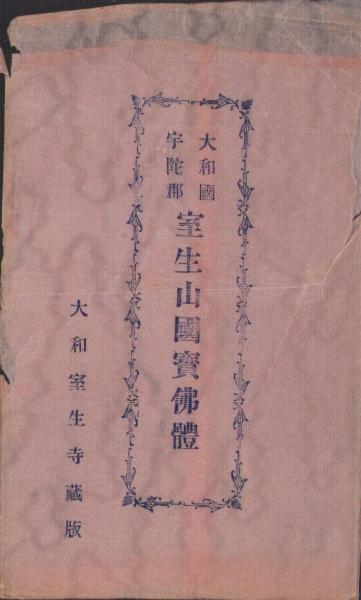 大和國
宇陀郡
室生山國寳佛體
大和室生寺藏版